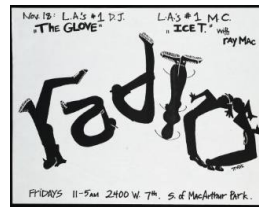 Nov. 18: L.A.'s #1 D.J.
"THE GLOVE"
L.A.'s #1 M.C.
"ICE T." with
RAY MAC
radio
FRIDAYS 11-5AM 2400 W. 7th. S. of MacArthur Park.